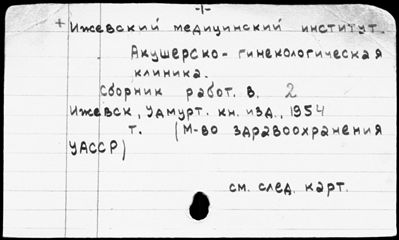 -1-
+ Ижевский медицинский институт.
Акушерско-гинекологическая
клиника.
Сборник работ. в. 2
Ижевск, Удмурт. кн. изд., 1954
т. (М-во здравоохранения
УАССР)
см. след. карт.